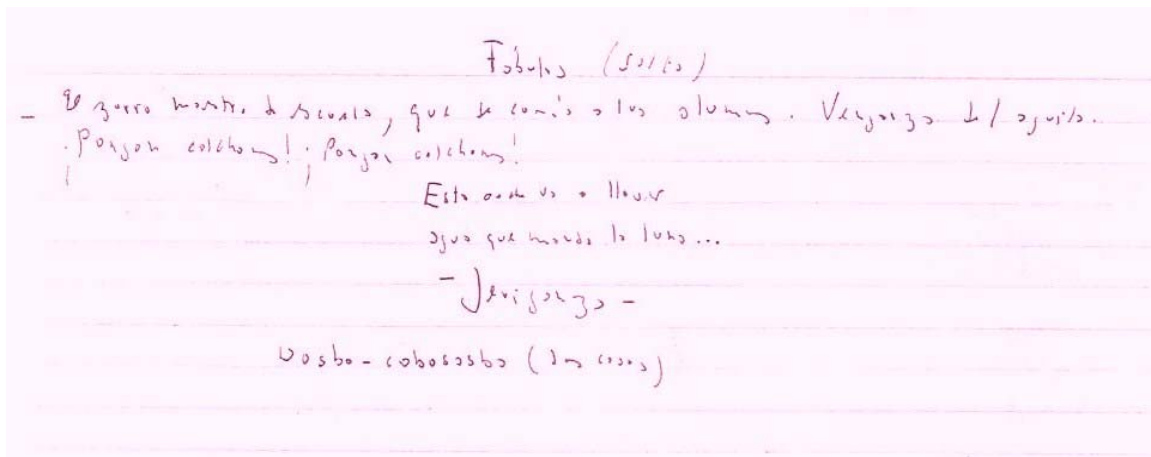 Fábulas (Salta)
- El zorro maestro de escuela, que se comía a los alumnos. Venganza del aguila.
¡Pongan colchones! ¡Pongan colchones!
Esta noche va a llover
agua que manda la luna...
- Jerigonza -
Dosbo-cobosasba (dos cosas)